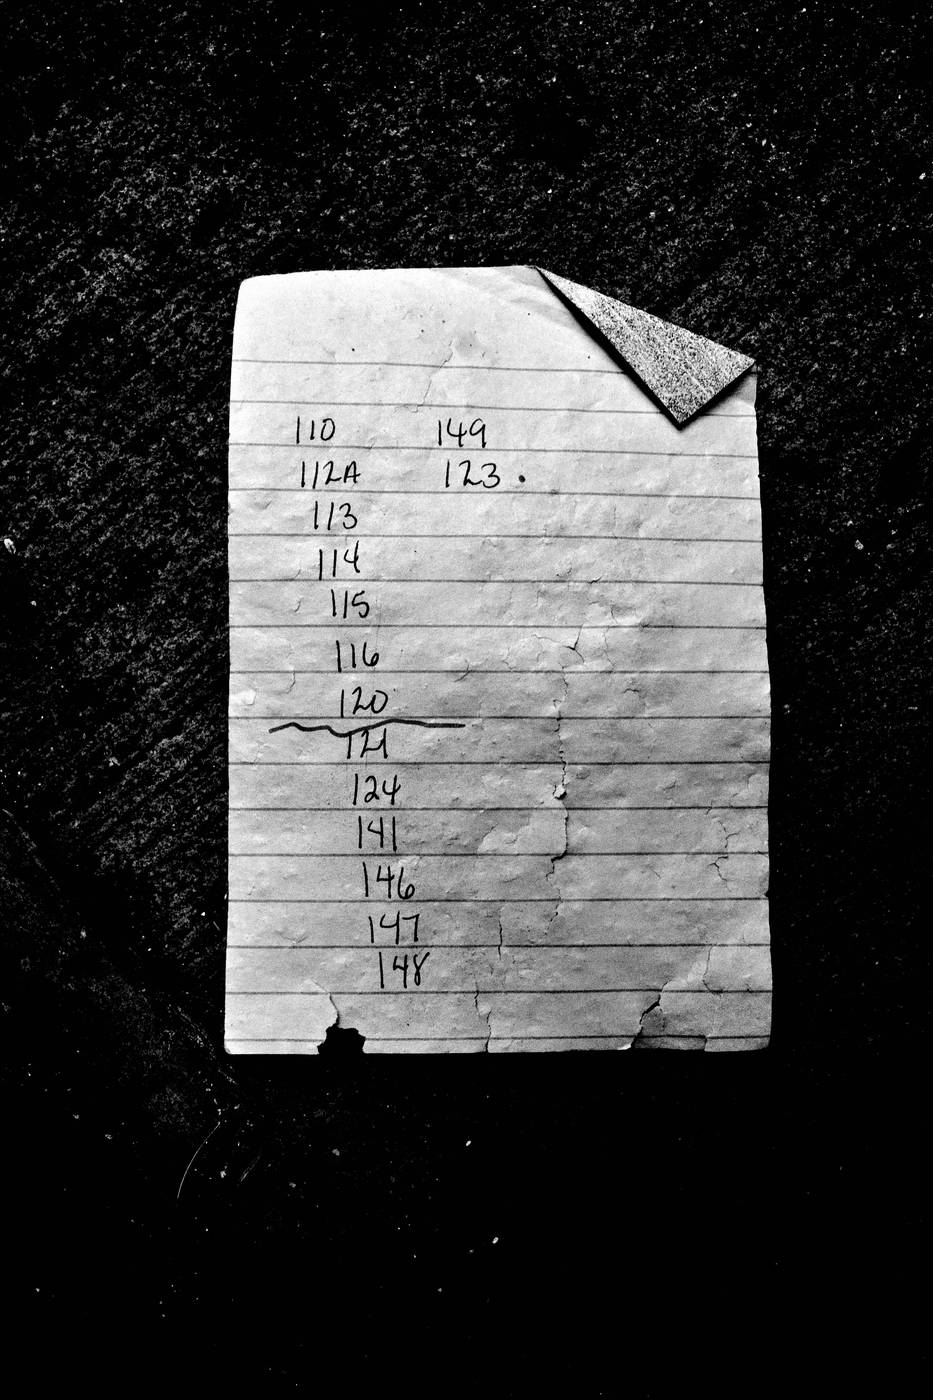 110
112A
113
114
115
116
120
121
124
141
146
147
148
149
123.